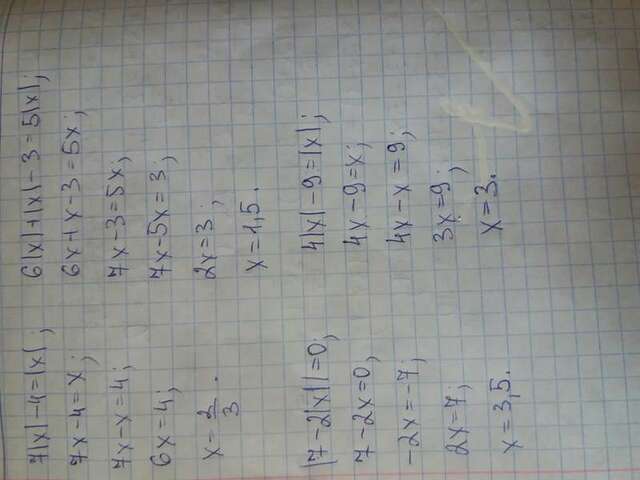 7|x|-4=|x|;
7x-4=x;
7x-x=4;
6x=4;
x=2/3.
6|x|+|x|-3=5|x|;
6x+x-3=5x;
7x-3=5x;
7x-5x=3;
2x=3;
x=1,5.
|7-2|x||=0;
7-2x=0;
-2x=-7;
2x=7;
x=3,5.
4|x|-9=|x|;
4x-9=x;
4x-x=9;
3x=9;
x=3.